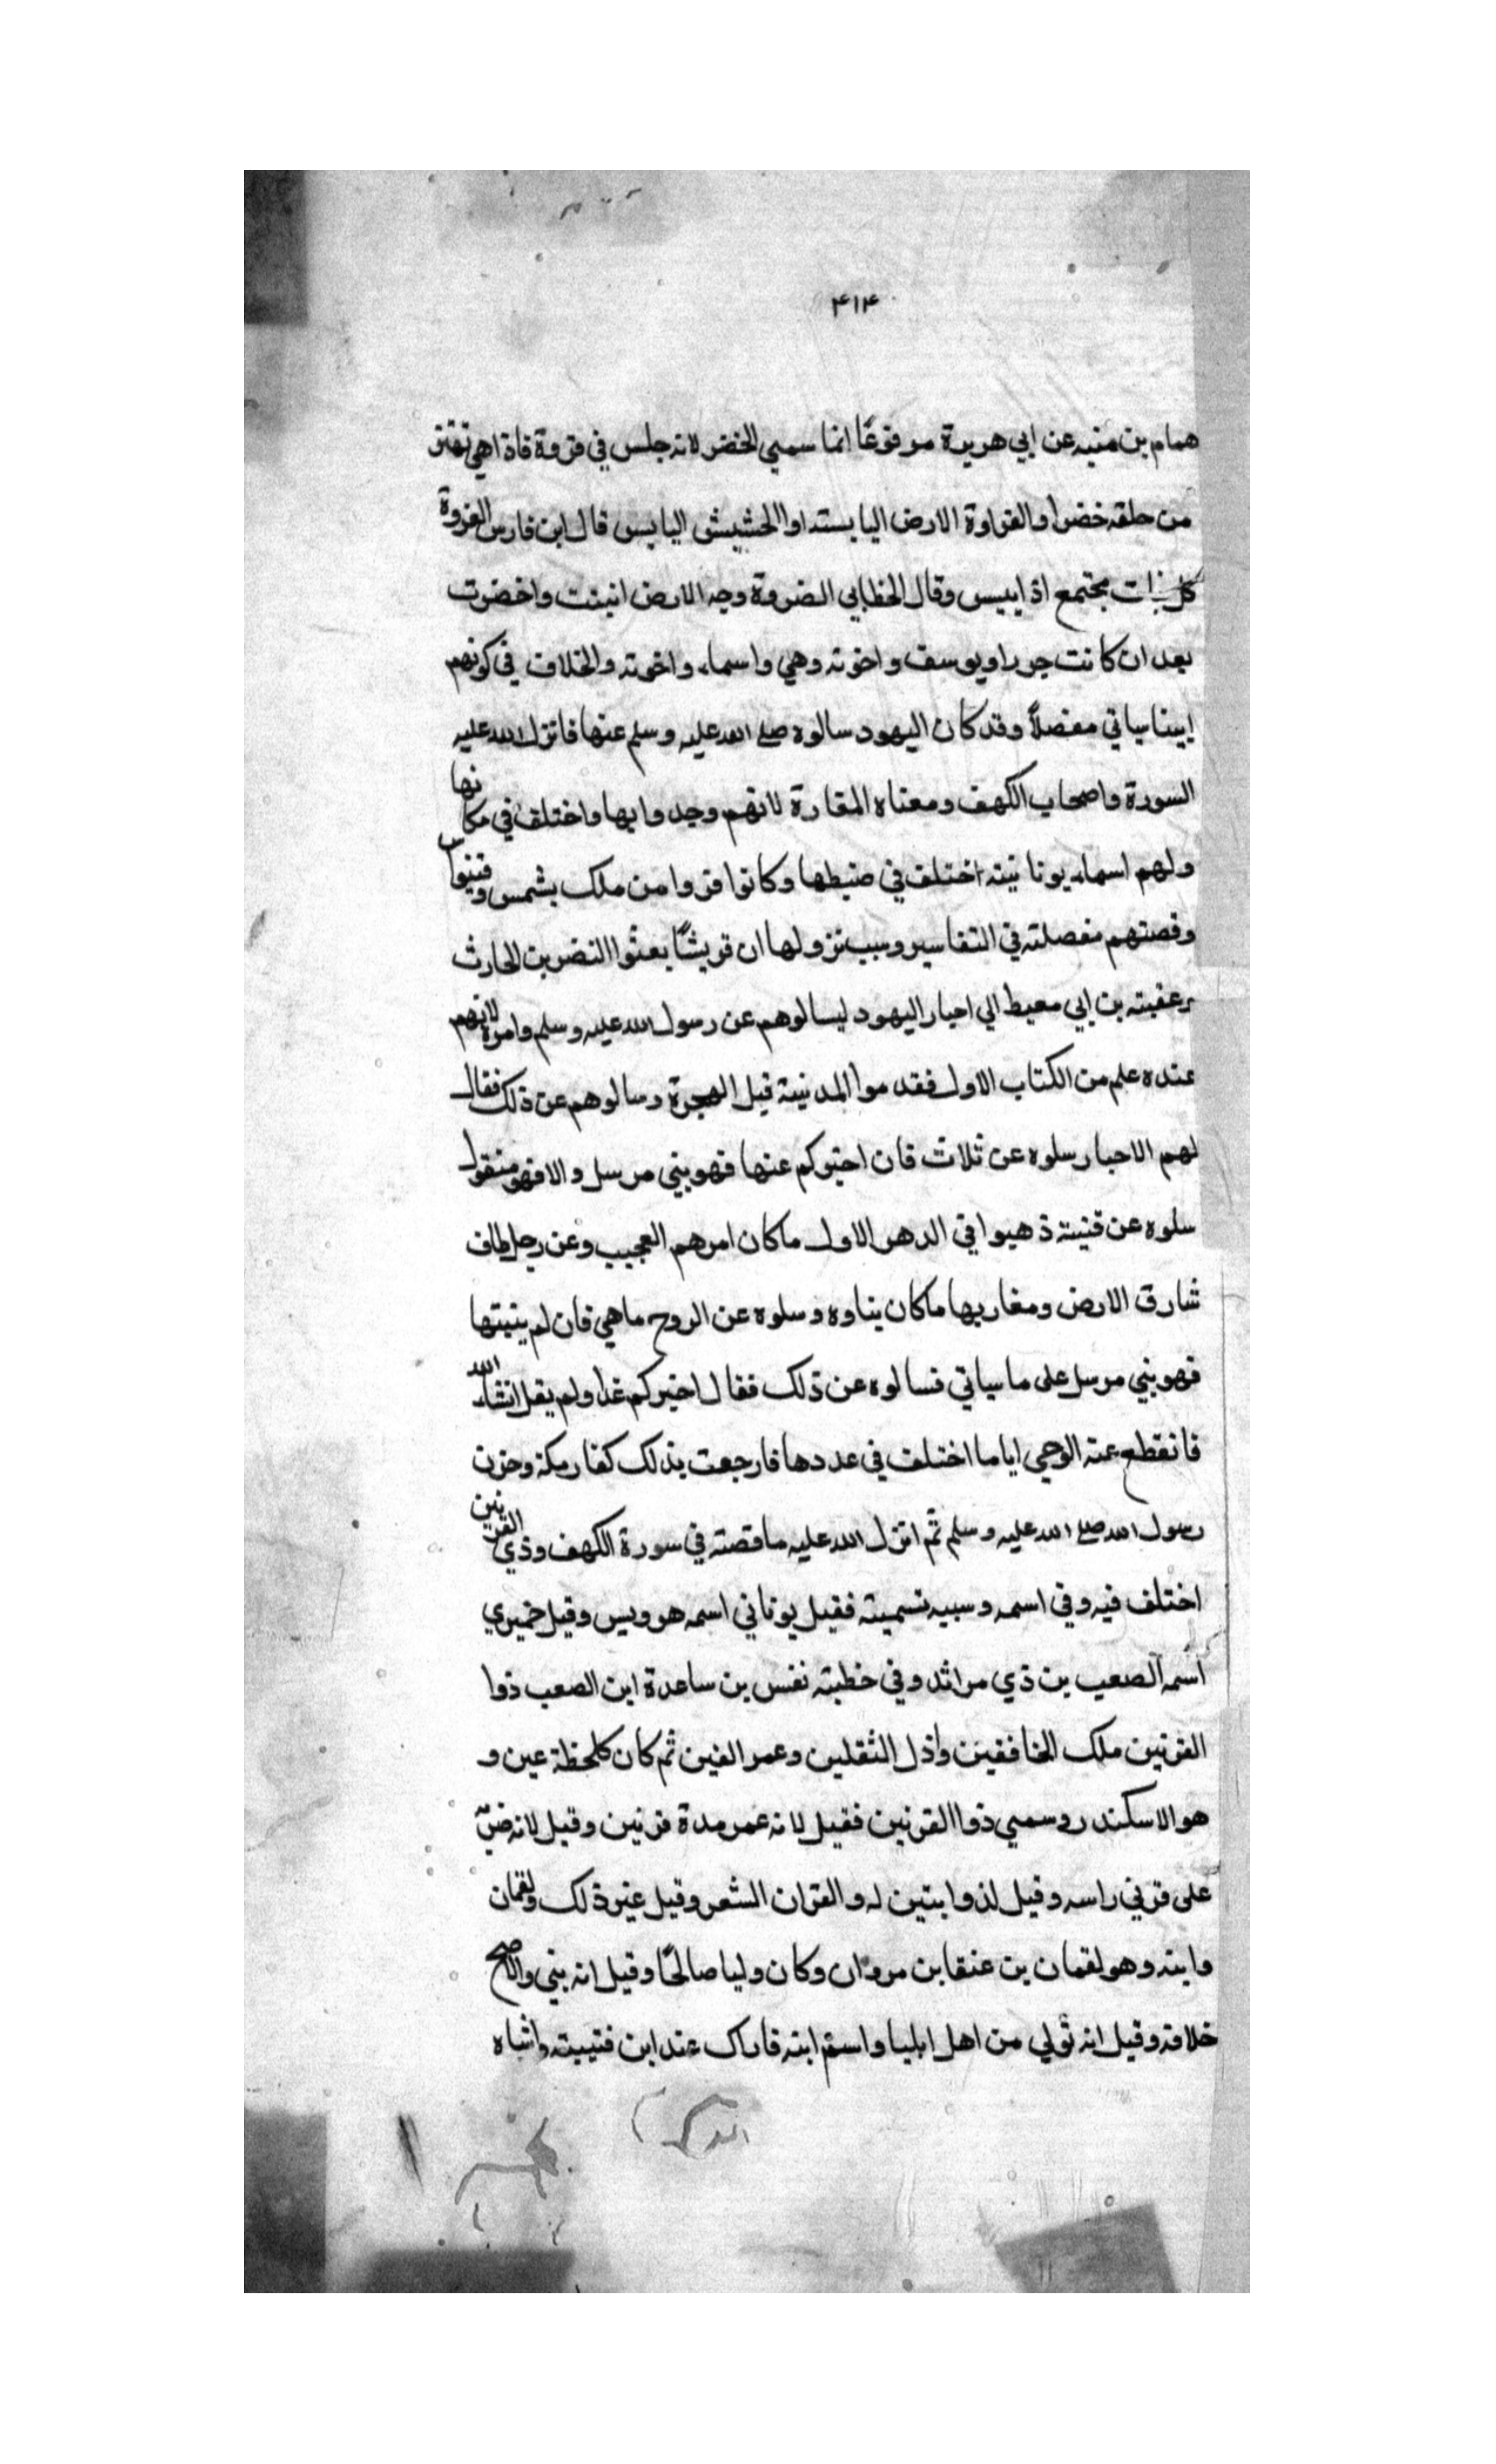 ۴۱۴
همام بن منبه عن ابي هريرة مرفوعًا انما سمي الخضر لانه جلس في فروة فاذا هي تهتز
من خلقه خضرا والفراوة الارض اليابسته اوالحشيش اليابس قال ابن فارس الفروة
كل نبات مجتمع اذا يبس وقال الخطابي الضروة وجه الارض انبتت واخضرت
بعد ان كانت جردا ويوسف واخوته وهي واسماء واخوته والخلاف في كونهم
ابينا سياتي مفصلاً وقد كان اليهود سالوه صلى الله عليه وسلم عنها فانزل الله عليه
السورة واصحاب الكهف ومعناه المقارة لانهم وجدوا بها واختلف في مكانها
ولهم اسماء يونانيته اختلف في ضبطها وكانوا فروا من ملك بشمس وفتنوا
وقصتهم مفصلته في التفاسير وسبب نزولها ان قريشًا بعثوا النضر بن الحارث
وعقبته بن ابي معيط الي احبار اليهود ليسالوهم عن رسول الله عليه وسلم وامره لانهم
عنده علم من الكتاب الاول فقدموا المدنية قبل الهجرة وسالوهم عن ذلك فقال
لهم الاحبار سلوه عن ثلاث فان اخبركم عنها فهو بني مرسل والا فهو منقول
سلوه عن فنيته ذهبوا في الدهر الاول ما كان امرهم العجيب وعن رجل طاف
شارق الارض ومغاربها ما كان بناوه وسلوه عن الروح ما هي فان لم ينبتها
فهو بني مرسل على ما سياتي فسالوه عن ذلك فقال اخبركم غدا ولم يقل انشاء الله
فانقطع عنه الوحي اياما اختلف في عددها فارجعت بذلك كفار مكة وحزن
رسول الله صلى الله عليه وسلم ثم انزل الله عليه ما قصته في سورة الكهف وذي القرنين
اختلف فيه وفي اسمه وسببه تسميته فقيل يوناني اسمه هرويس وقيل حميري
اسمه الصعب بن ذي مراثد وفي خطبته نفس بن ساعدة ابن الصعب ذوا
القرنين ملك الخافقين واذل الثقلين وعمر الفين ثم كان كلحظة عين و
هو الاسكندر وسمي ذوا القرنين فقيل لانه عمر مدة قرنين وقيل لانه ضرب
على قرني راسه وقيل لذوابتين له والقران الشعر وقيل غير ذلك ولقمان
وابنه وهو لقمان بن عنقا بن مروان وكان وليا صالحًا وقيل انه بني والاصح
خلافه وقيل انه تولي من اهل ابليا واسم ابنه فاراك عند ابن قتيبته واشباه